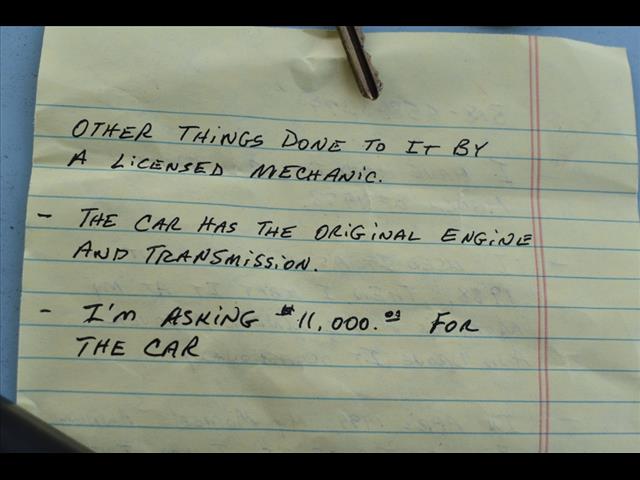 OTHER THINGS DONE TO IT BY
A LICENSED MECHANIC.
- THE CAR HAS THE ORIGINAL ENGINE
AND TRANSMISSION.
- I'M ASKING $11,000.00 FOR
THE CAR